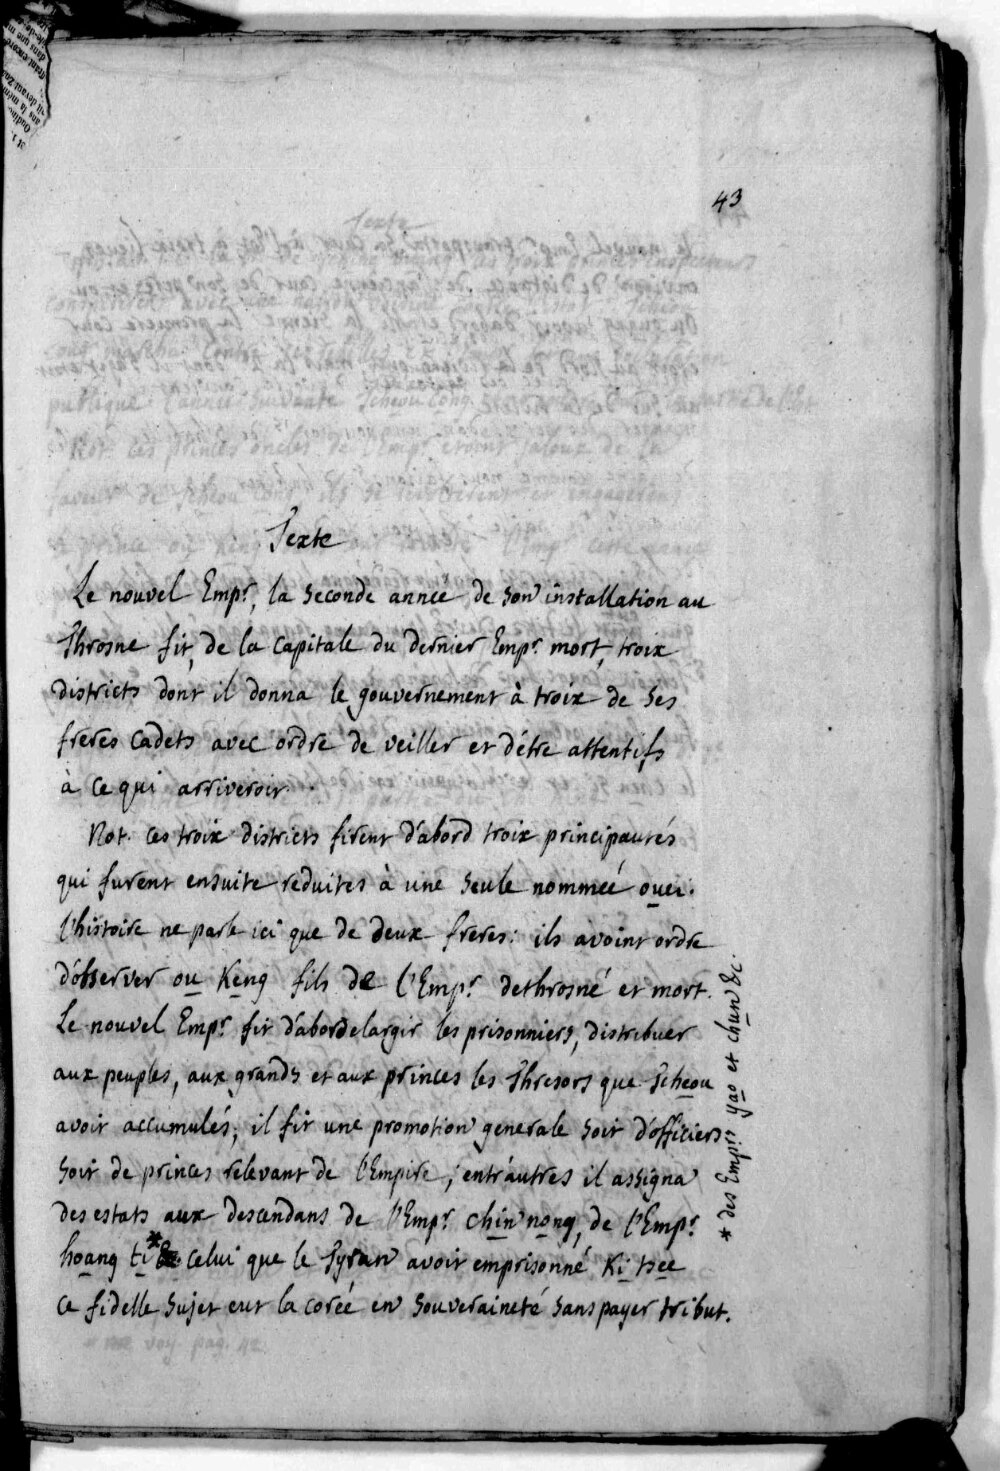 43
Texte
Le nouvel Emp.r, la seconde annee, de son installation au
Throsne fit, de la capitale du dernier Emp.r mort, troix
districts dont il donna le gouvernement à troix de ses
freres cadets avec ordre de veiller et d'étre attentifs
à ce qui arriveroit.
Not. ces troix districts firent d'abord troix principautés
qui furent ensuite reduites à une seule nommeé ouei.
l'histoire ne parle ici que de deux freres: ils avoint ordre
d'observer ou Keng fils de l'Emp.r dethrosné et mort.
Le nouvel Emp.r fit d'abord elargir les prisonniers, distribuer
aux peuples, aux grands et aux princes les Thresors que Tcheou
avoit accumulés; il fit une promotion generale soit d'officiers
soit de princes relevant de l'Empire; entr'autres il assigna
des estats aux descendans de l'Emp.r chin nong, de l'Emp.r
hoang ti* & celui que le Tyran avoit emprisonné Ki tsee
ce fidelle sujet eut la coreé en souveraineté sans payer tribut.
* des Emp.rs yao et chun &c.